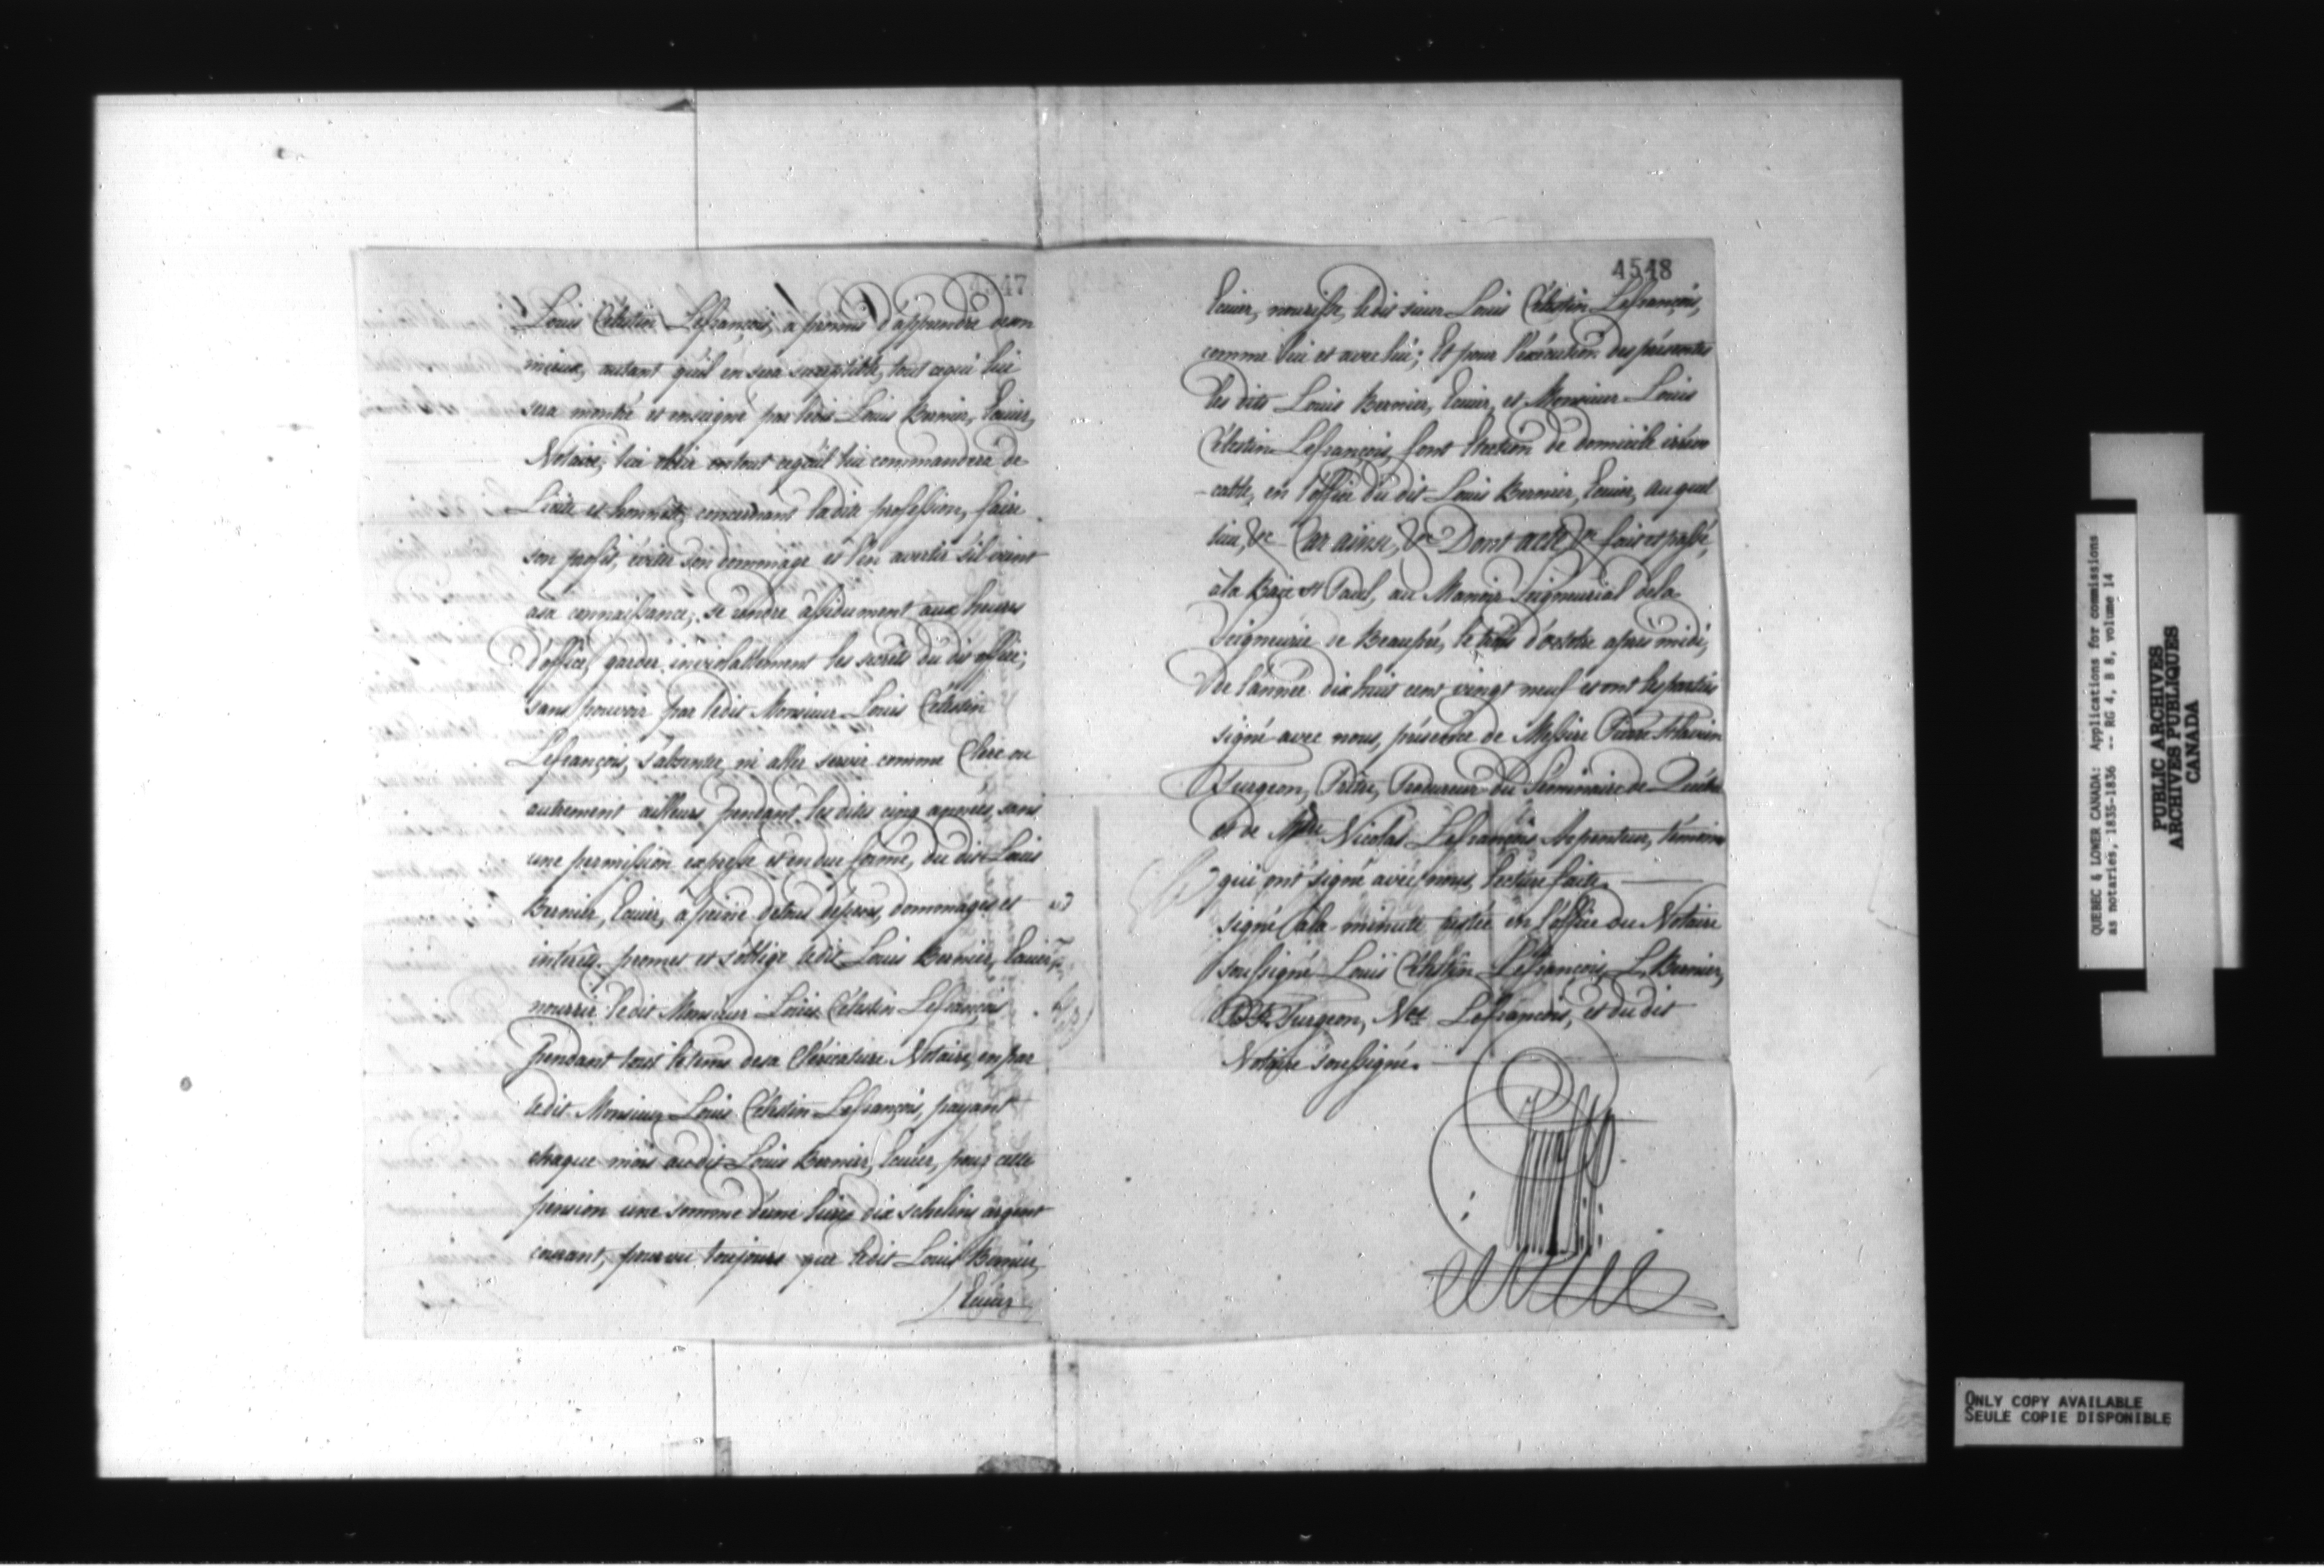 47
Louis Célestin Lefrançois, a promis d'apprendre deson
mieux, autant qu'il en sera susceptible, tout cequi lui
sera montré et enseigné par ledit Louis Bernier, Ecuier,
Notaire, lui obéir entout cequ'il lui commandera de
licite et honnête, concernant ladite profession, faire
son profit, éviter son dommage et l'en avertir s'il vient
asa connaissance; se rendre assidument aux heures
d'office, garder inviolablement les secrets du dit office;
sans pouvoir par ledit Monsieur Louis Célestin
Lefrançois, s'absenter, ni aller servir comme Clerc ou
autrement ailleurs pendant les dites cinq années, sans
une permission expresse et en due forme, du dit Louis
Bernier, Ecuier, à peine detous dépens, dommages et
intérêts. promet et s'oblige ledit Louis Bernier, Ecuier,
nourrir ledit Monsieur Louis Célestin Lefrançois
pendant tout letems desa Cléricature Notaire, en par
ledit Monsieur Louis Célestin Lefrançois, payant
chaque mois audit Louis Bernier, Ecuier, pour cette
pension une somme d'une livre dix schelins argent
courant, pourvu toujours que ledit Louis Bernier,
Ecuier
4548
Ecuier, nourisse, ledit sieur Louis Célestin Lefrançois,
comme lui et avec lui; Et pour l'exécution desprésentes
les dits Louis Bernier, Ecuier, et Monsieur Louis
Célestin Lefrançois, font Election de domicile irrévo
-cable, en l'office du dit Louis Bernier, Ecuier, auquel
lieu, &c Car ainsi, &c Dont acte, &c fait et passé,
àla Baie St Paul, au Manoir Seigneurial dela
Seigneurie de Beaupré, le d'octobre après midi,
De l'année dix huit cent vingt neuf et ont lesparties
signé avec nous, présence de Messire Pierre Flavien
Turgeon, Prêtre, Procureur du Séminaire de Québec
et de Nicolas Lefrançois Arpenteur, témoins
qui ont signé avec nous, lecture faite.
signé àla minute restée en l'office du Notaire
soussigné Louis Célestin Lefrançois, L. Bernier,
P. F. Turgeon, Nes Lefrançois, et du dit
Notaire soussigné.
QUEBEC & LOWER CANADA: Applications for commissions
as notaries, 1835-1836 -- RG 4, B 8, volume 14
PUBLIC ARCHIVES
ARCHIVES PUBLIQUES
CANADA
ONLY COPY AVAILABLE
SEULE COPIE DISPONIBLE